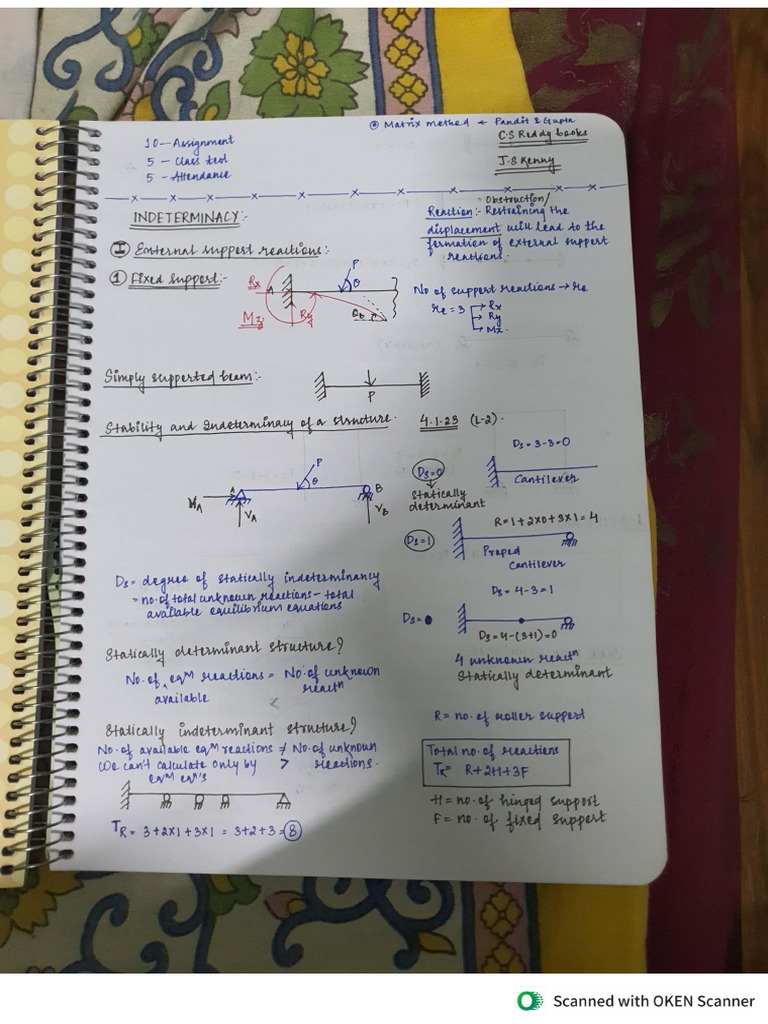 10 - Assignment
5 - Class test
5 - Attendance
⊛ Matrix method ← Pandit & Gupta
C.S Reddy books
J.S Kenny
INDETERMINACY:-
Ⓘ External support reactions:-
① Fixed support:-
Rx
Mz
Ry
P
θ
θb
= Obstruction/
Reaction:- Restraining the
displacement will lead to the
formation of external support
reactions.
No of support reactions → re
re = 3 → Rx
→ Ry
→ Mz.
Simply supported beam:-
P
Stability and Indeterminacy of a structure.
4.1.23 (L-2).
P
θ
A
B
HA
VA
VB
Ds = degree of statically indeterminancy
= no. of total unknown reactions - total
available equilibrium equations
Statically determinant structure?
No. of eqᵐ reactions = No. of unknown
available reactⁿ
Statically indeterminant structure?
No. of available eqᵐ reactions ≠ No. of unknown
We can't calculate only by > reactions.
eqᵐ eqⁿ's
TR = 3+2x1+3x1 = 3+2+3 = 8
Ds=0
Statically
determinant
Ds = 3-3=0
Cantilever
Ds=1
R=1+2x0+3x1=4
Proped
Cantilever
Ds = 4-3=1
Ds=
Ds=4-(3+1)=0
4 unknown reactⁿ
Statically determinant
R = no. of roller support
Total no. of reactions
TR= R+2H+3F
H = no. of hinged support
F = no. of fixed support
Scanned with OKEN Scanner